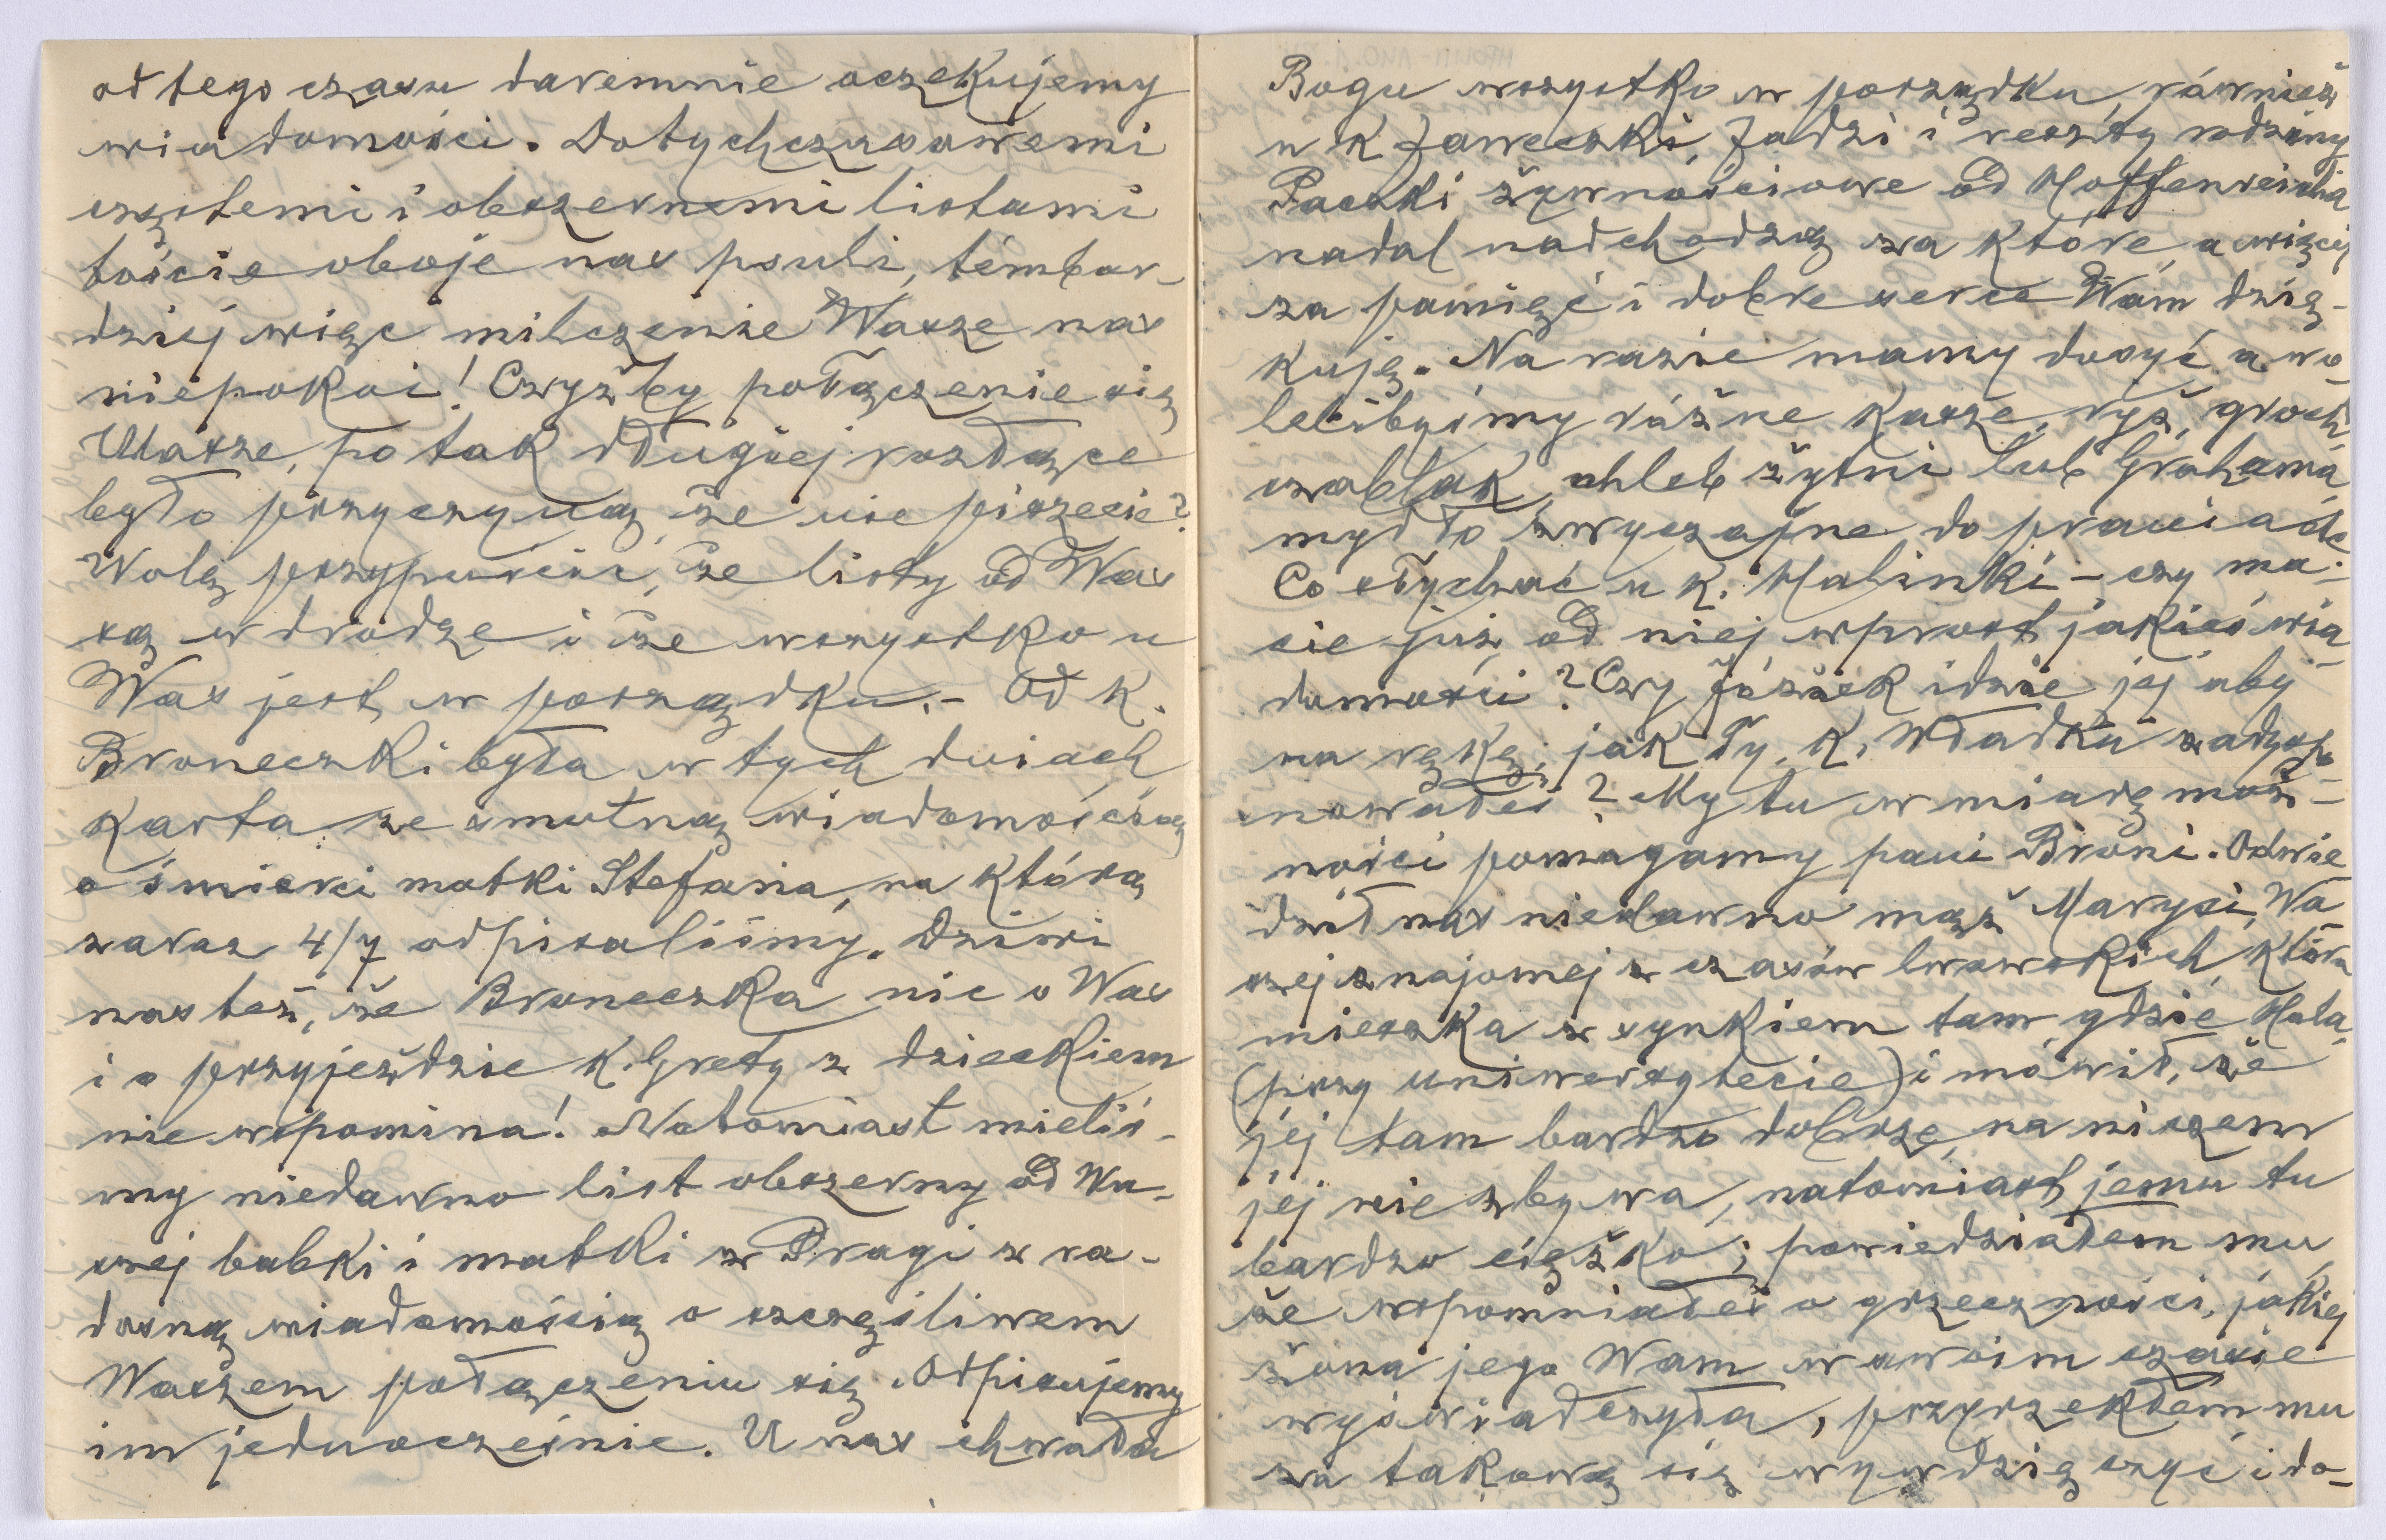 od tego czasu daremnie oczekujemy
wiadomości. Dotychczasowemi
częstemi i obszernemi listami
toście oboje nas psuli, témbar-
dziej więc milczenie Wasze nas
niepokoi! Czyżby połączenie się
Wasze, po tak długiej rozłące
było przyczyną, że nie piszecie?
Wolę przypuścić, że listy od Was
są w drodze i że wszystko u
Was jest w porządku.- Od K.
Broneczki była w tych dniach
Karta ze smutną wiadomością
o śmierci matki Stefana, na którą
zaraz 4/7 odpisaliśmy. Dziwi
nas też, że Broneczka nic o Was
i o przyjeździe K. Grety z dzieckiem
nie wspomina! Natomiast mieliś-
my niedawno list obszerny od Wa-
szej babki i matki z Pragi z ra-
dosną wiadomością o szczęśliwem
Waszem połączeniu się. Odpisujemy
im jednocześnie. U nas chwała
Bogu wszystko w porządku, również
u K Jaweczki, Jadzi i reszty rodziny
Paczki żywnościowe od Hoffenreicha
nadal nadchodzą za które, a więcej
za pamięć i dobre serce Wam dzię-
kuję. Na razie mamy dosyć a wo-
lelibyśmy różne Kasze, ryż, groch,
czablak, chleb żytni lub Grahama,
mydło zwyczajne do prania etc
Co słychać u K. Halinki - czy ma-
cie już od niej wprost jakieś wia-
domości? Czy Józiek idzie jej aby
na rękę, jak Ty, K. Władku zadyspo-
nowałeś? My tu w miarę moż-
ności pomagamy pani Broni. Odwie-
dził nas niedawno mąż Marysi, Wa-
szej znajomej z czasów lwowskich, która
mieszka z synkiem tam, gdzie Hala,
(przy uniwersytecie) i mówił, że
jej tam bardzo dobrze, na niczem
jej nie zbywa, natomiast jemu tu
bardzo ciężko; powiedziałem mu,
że wspomniałeś o grzeczności, jakiej
żona jego Wam w swoim czasie
wyświadczyła, przyrzekłem mu
za takową się wywdzięczyć i do-